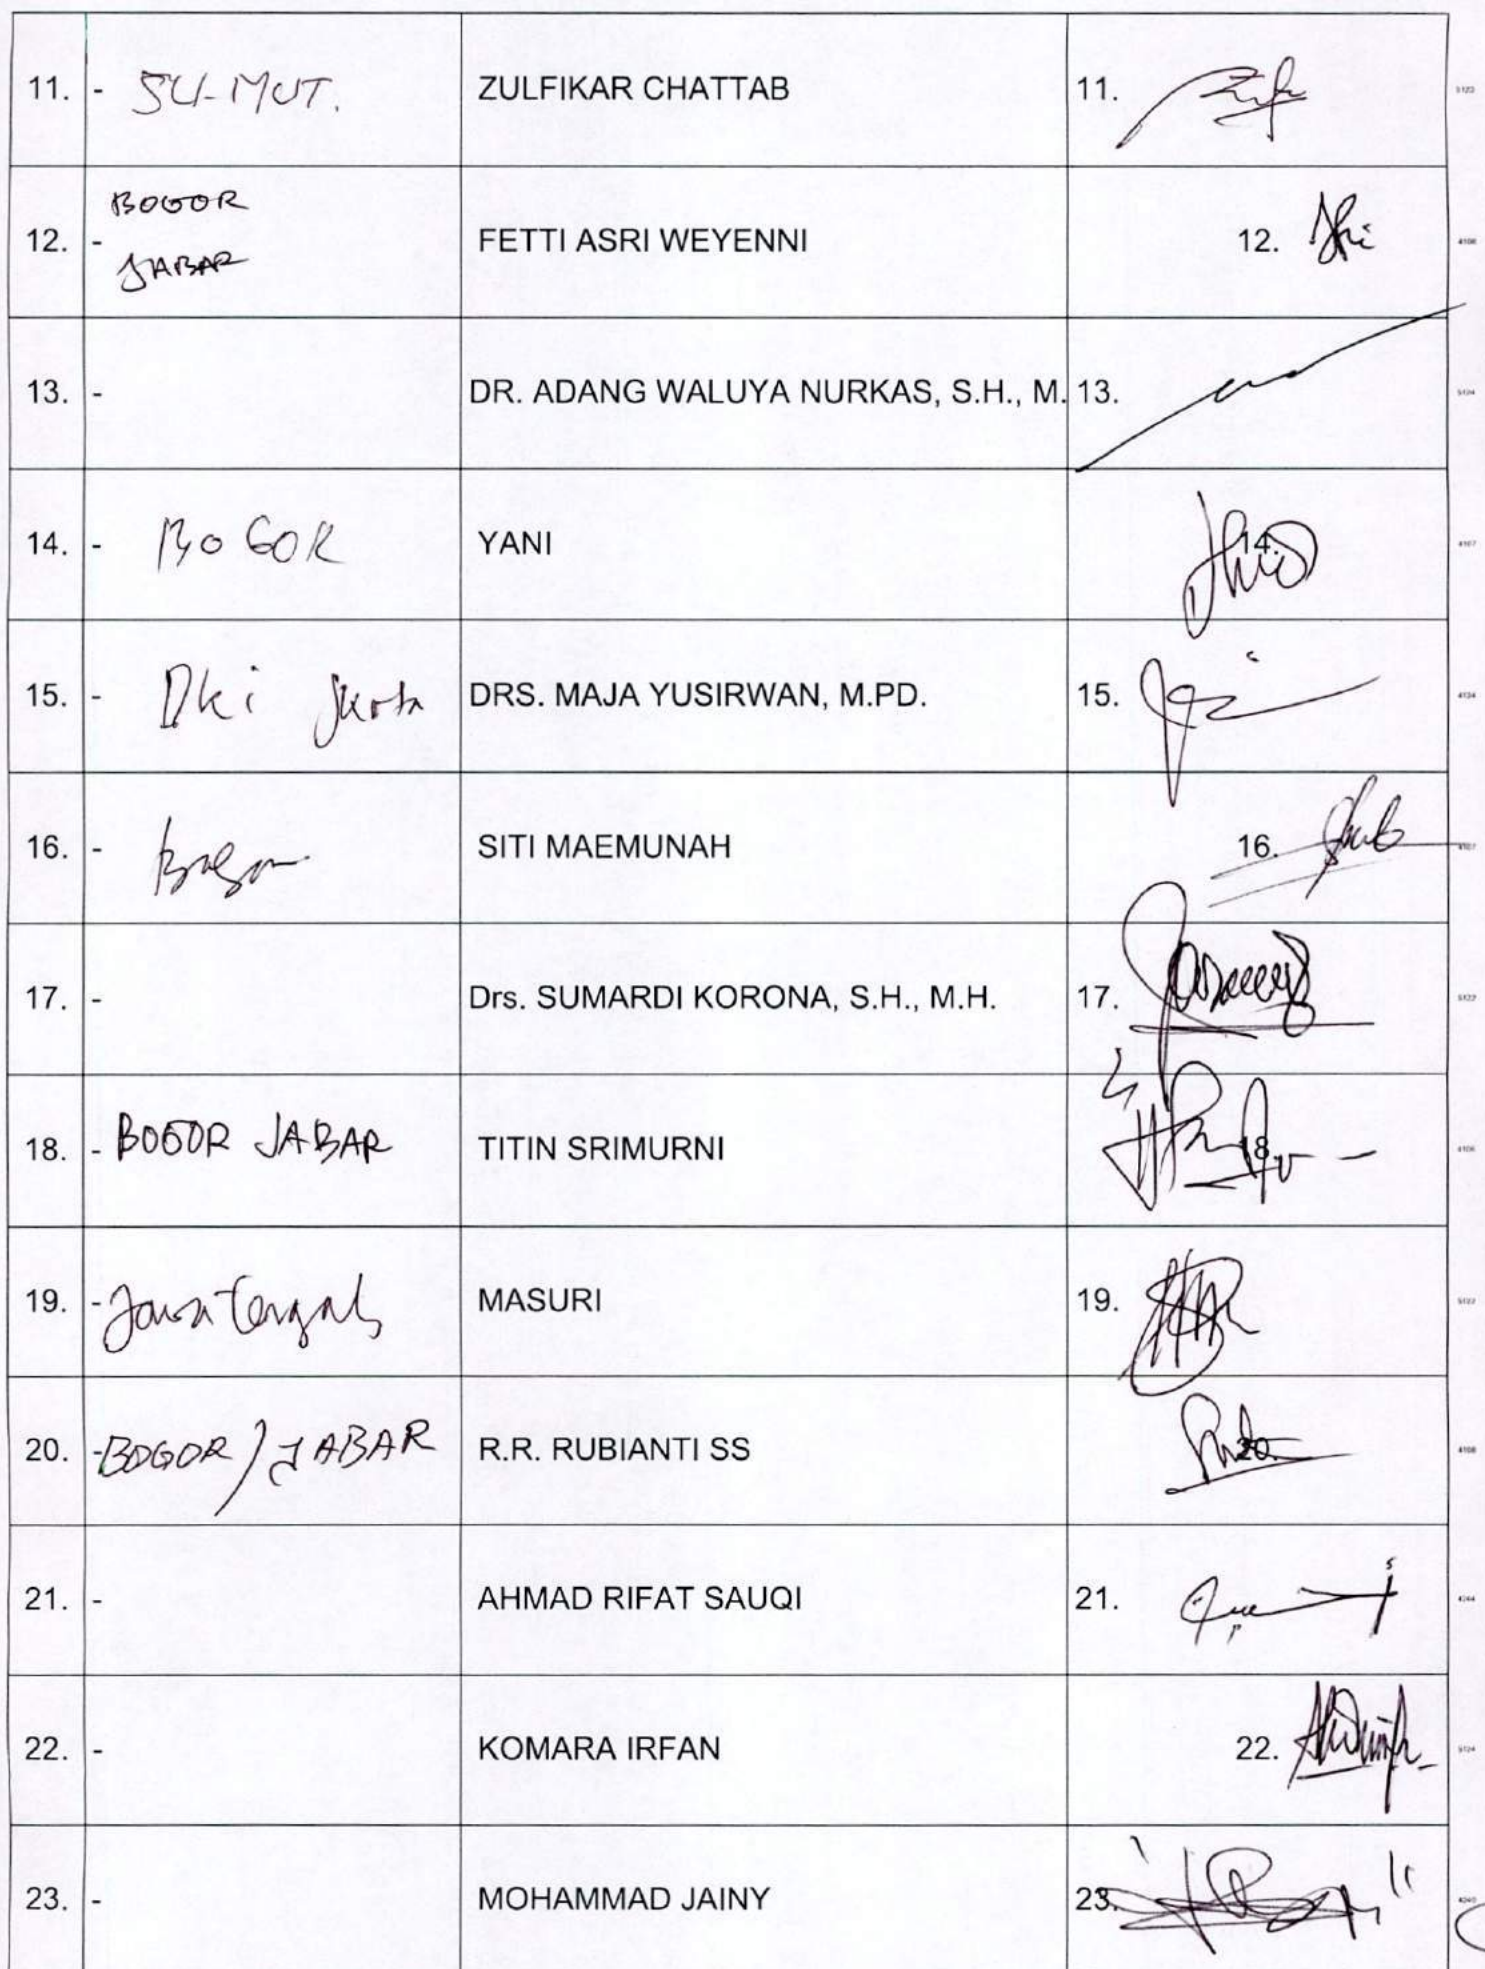 11. - SU-MUT. ZULFIKAR CHATTAB 11.
BOGOR
12. - FETTI ASRI WEYENNI 12.
JABAR
13. - DR. ADANG WALUYA NURKAS, S.H., M. 13.
14. - BOGOR YANI 14.
15. - DKi DRS. MAJA YUSIRWAN, M.PD. 15.
16. - Bogor SITI MAEMUNAH 16.
17. - Drs. SUMARDI KORONA, S.H., M.H. 17.
18. - BOGOR JABAR TITIN SRIMURNI 18.
19. - Jawa Tengah MASURI 19.
20. - BOGOR / JABAR R.R. RUBIANTI SS 20.
21. - AHMAD RIFAT SAUQI 21.
22. - KOMARA IRFAN 22.
23. - MOHAMMAD JAINY 23.